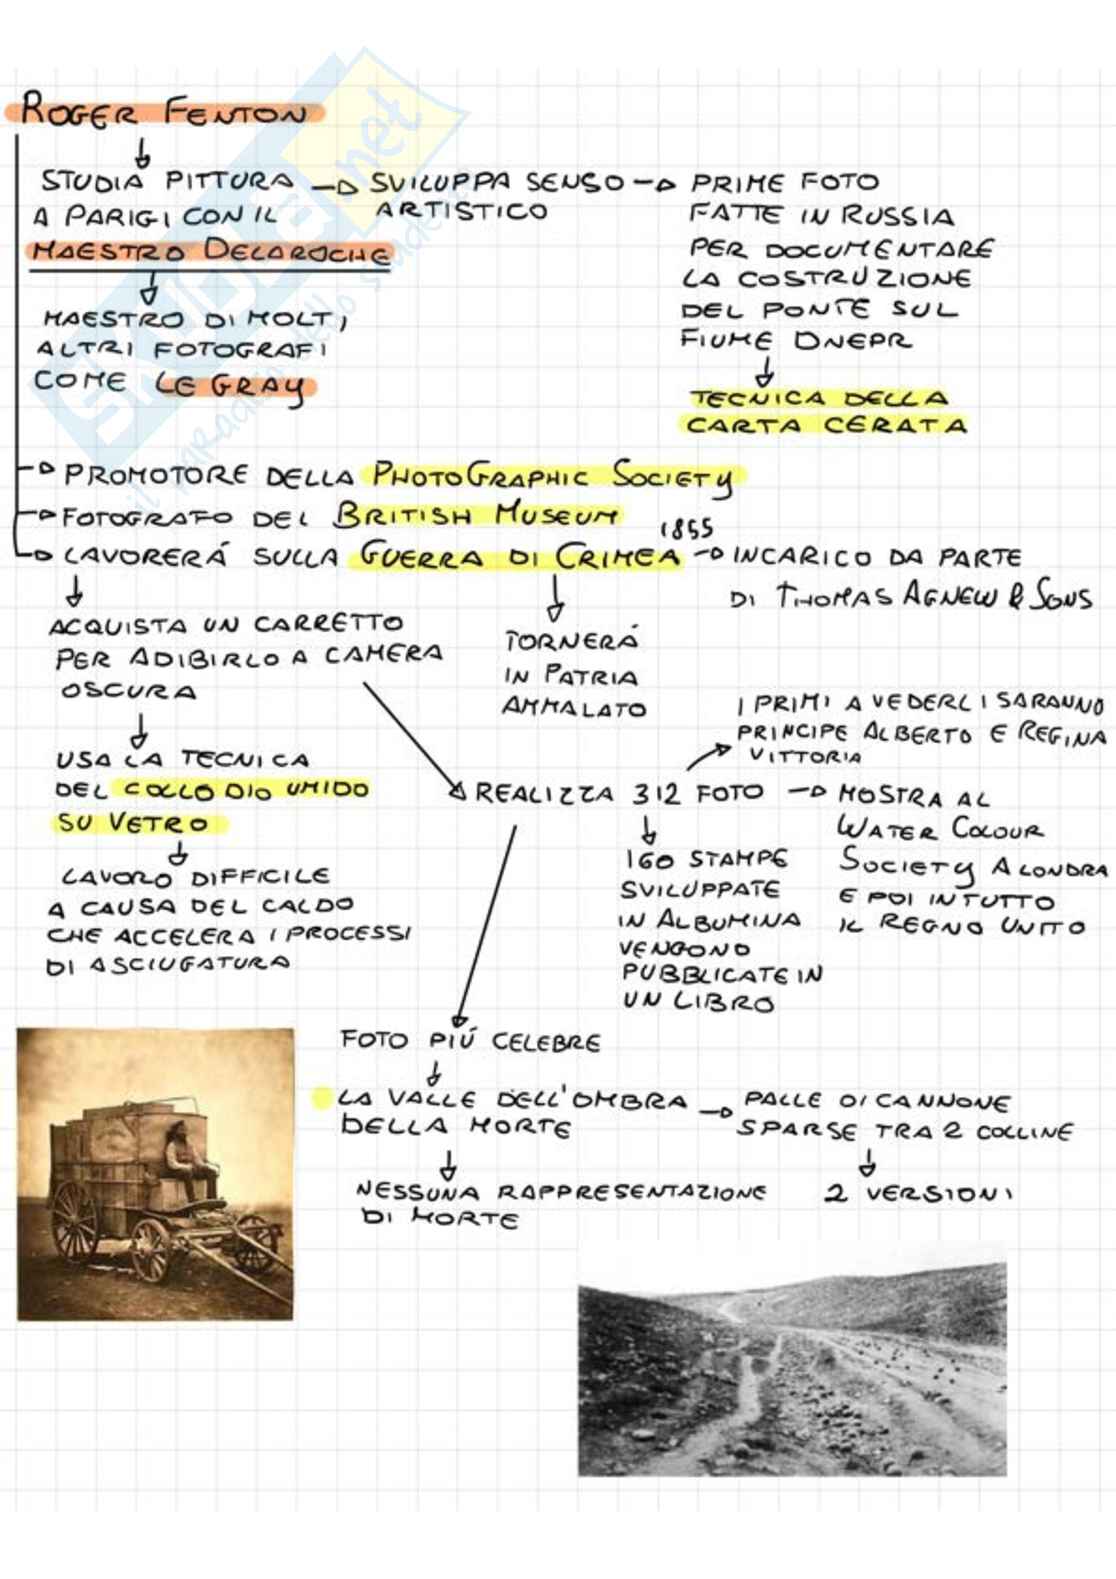 ROGER FENTON
STUDIA PITTURA
A PARIGI CON IL
MAESTRO DELAROCHE
SVILUPPA SENSO
ARTISTICO
PRIME FOTO
FATTE IN RUSSIA
PER DOCUMENTARE
LA COSTRUZIONE
DEL PONTE SUL
FIUME DNEPR
TECNICA DELLA
CARTA CERATA
MAESTRO DI MOLTI
ALTRI FOTOGRAFI
COME LE GRAY
PROMOTORE DELLA PHOTOGRAPHIC SOCIETY
FOTOGRAFO DEL BRITISH MUSEUM
LAVORERÁ SULLA GUERRA DI CRIMEA 1855
INCARICO DA PARTE
DI THOMAS AGNEW & SONS
ACQUISTA UN CARRETTO
PER ADIBIRLO A CAMERA
OSCURA
TORNERÁ
IN PATRIA
AMMALATO
USA LA TECNICA
DEL COLLODIO UMIDO
SU VETRO
LAVORO DIFFICILE
A CAUSA DEL CALDO
CHE ACCELERA I PROCESSI
DI ASCIUGATURA
REALIZZA 312 FOTO
I PRIMI A VEDERLI SARANNO
PRINCIPE ALBERTO E REGINA
VITTORIA
MOSTRA AL
WATER COLOUR
SOCIETY A LONDRA
E POI IN TUTTO
IL REGNO UNITO
160 STAMPE
SVILUPPATE
IN ALBUMINA
VENGONO
PUBBLICATE IN
UN LIBRO
FOTO PIÚ CELEBRE
LA VALLE DELL'OMBRA
DELLA MORTE
PALLE DI CANNONE
SPARSE TRA 2 COLLINE
2 VERSIONI
NESSUNA RAPPRESENTAZIONE
DI MORTE
SKUOLA.net